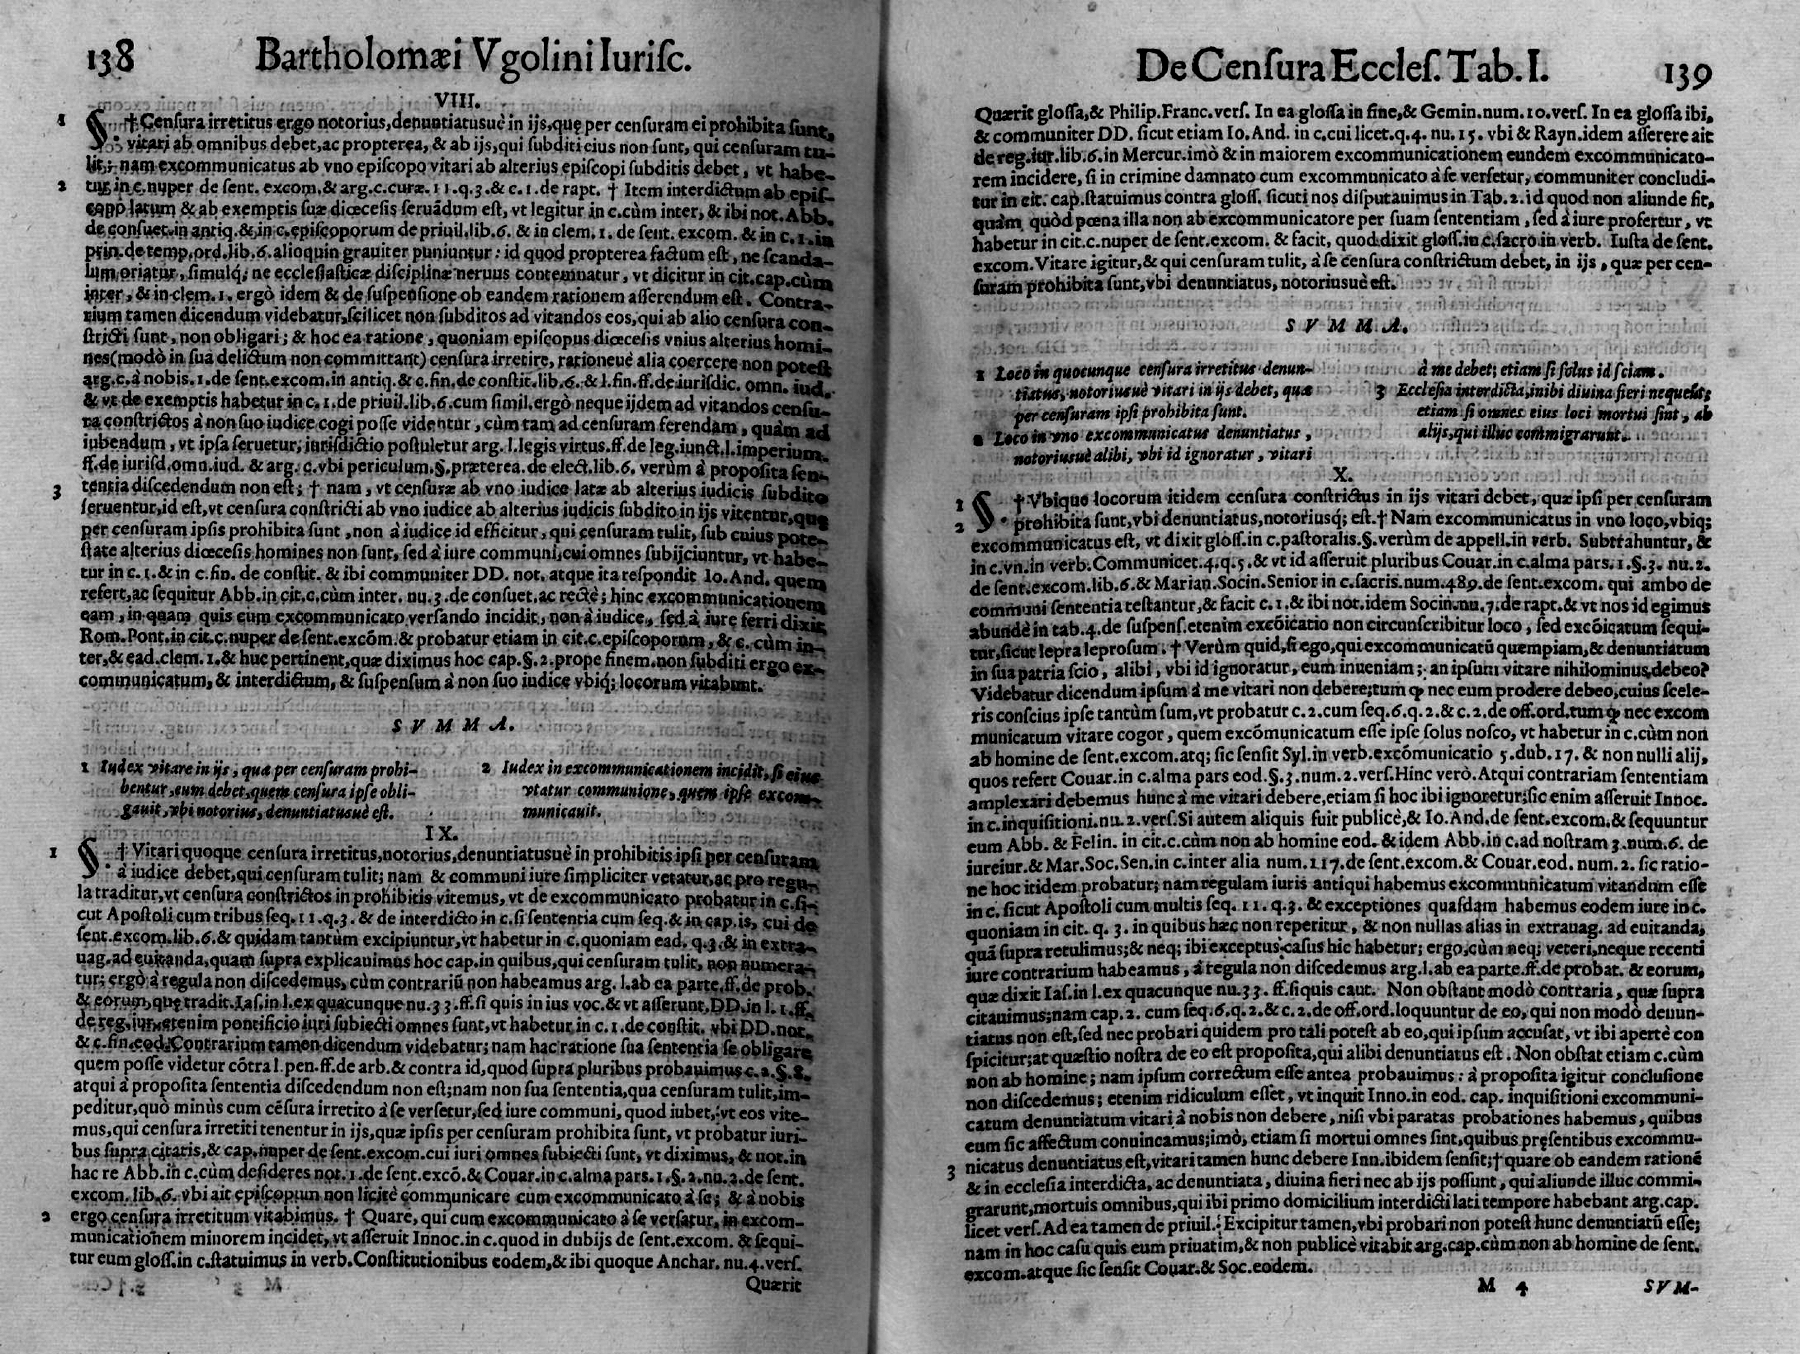 138 Bartholomæi Vgolini Iurisc.
VIII.
1 §. † Censura irretitus ergo notorius, denuntiatusuè in ijs, quę per censuram ei prohibita sunt,
vitari ab omnibus debet, ac propterea, & ab ijs, qui subditi eius non sunt, qui censuram tu-
lit; nam excommunicatus ab vno episcopo vitari ab alterius episcopi subditis debet, vt habe-
2 tur in c. nuper de sent. excom. & arg. c. curæ. 11. q. 3. & c. 1. de rapt. † Item interdictum ab epis-
copo latum & ab exemptis suæ diœcesis seruādum est, vt legitur in c. cùm inter, & ibi not. Abb.
de consuet. in antiq. & in c. episcoporum de priuil. lib. 6. & in clem. 1. de sent. excom. & in c. 1. in
prin. de temp. ord. lib. 6. alioquin grauiter puniuntur: id quod propterea factum est, ne scanda-
lum oriatur, simulq́; ne ecclesiasticæ disciplinæ neruus contemnatur, vt dicitur in cit. cap. cùm
inter, & in clem. 1. ergò idem & de suspensione ob eandem rationem asserendum est. Contra-
rium tamen dicendum videbatur, scilicet non subditos ad vitandos eos, qui ab alio censura con-
stricti sunt, non obligari; & hoc ea ratione, quoniam episcopus diœcesis vnius alterius homi-
nes (modò in sua delictum non committant) censura irretire, rationeuè alia coercere non potest
arg. c. à nobis. 1. de sent. excom. in antiq. & c. fin. de constit. lib. 6. & l. fin. ff. de iurisdic. omn. iud.
& vt de exemptis habetur in c. 1. de priuil. lib. 6. cum simil. ergò neque ijdem ad vitandos censu-
ra constrictos à non suo iudice cogi posse videntur, cùm tam ad censuram ferendam, quàm ad
iubendum, vt ipsa seruetur, iurisdictio postuletur arg. l. legis virtus. ff. de leg. iunct. l. imperium.
ff. de iurisd. omn. iud. & arg. c. vbi periculum. §. præterea. de elect. lib. 6. verùm à proposita sen-
3 tentia discedendum non est; † nam, vt censuræ ab vno iudice latæ ab alterius iudicis subdito
seruentur, id est, vt censura constricti ab vno iudice ab alterius iudicis subdito in ijs vitentur, quę
per censuram ipsis prohibita sunt, non à iudice id efficitur, qui censuram tulit, sub cuius pote-
state alterius diœcesis homines non sunt, sed à iure communi, cui omnes subijciuntur, vt habe-
tur in c. 1. & in c. fin. de constit. & ibi communiter DD. not. atque ita respondit Io. And. quem
refert, ac sequitur Abb. in cit. c. cùm inter. nu. 3. de consuet. ac rectè; hinc excommunicationem
eam, in quam quis cum excommunicato versando incidit, non à iudice, sed à iure ferri dixit
Rom. Pont. in cit. c. nuper de sent. excōm. & probatur etiam in cit. c. episcoporum, & c. cùm in-
ter, & ead. clem. 1. & huc pertinent, quæ diximus hoc cap. §. 2. prope finem. non subditi ergo ex-
communicatum, & interdictum, & suspensum à non suo iudice vbiq́; locorum vitabunt.
SVMMA.
1 Iudex vitare in ijs, quæ per censuram prohi-
bentur, eum debet, quem censura ipse obli-
gauit, vbi notorius, denuntiatusuè est.
2 Iudex in excommunicationem incidit, si eius
vtatur communione, quem ipse excom-
municauit.
IX.
1 §. † Vitari quoque censura irretitus, notorius, denuntiatusuè in prohibitis ipsi per censuram
à iudice debet, qui censuram tulit; nam & communi iure simpliciter vetatur, ac pro regu-
la traditur, vt censura constrictos in prohibitis vitemus, vt de excommunicato probatur in c. si-
cut Apostoli cum tribus seq. 11. q. 3. & de interdicto in c. si sententia cum seq. & in cap. is, cui de
sent. excom. lib. 6. & quidam tantum excipiuntur, vt habetur in c. quoniam ead. q. 3. & in extra-
uag. ad euitanda, quam supra explicauimus hoc cap. in quibus, qui censuram tulit, non numera-
tur; ergò à regula non discedemus, cùm contrariū non habeamus arg. l. ab ea parte. ff. de prob.
& eorum, quę tradit. Ias. in l. ex quacunque nu. 33. ff. si quis in ius voc. & vt asserunt, DD. in l. 1. ff.
de reg. iur. etenim pontificio iuri subiecti omnes sunt, vt habetur in c. 1. de constit. vbi DD. not.
& c. fin. eod. Contrarium tamen dicendum videbatur; nam hac ratione sua sententia se obligare
quem posse videtur cōtra l. pen. ff. de arb. & contra id, quod supra pluribus probauimus c. 2. §. 8.
atqui à proposita sententia discedendum non est; nam non sua sententia, qua censuram tulit, im-
peditur, quò minùs cum cēsura irretito à se versetur, sed iure communi, quod iubet, vt eos vite-
mus, qui censura irretiti tenentur in ijs, quæ ipsis per censuram prohibita sunt, vt probatur iuri-
bus supra citatis, & cap. nuper de sent. excom. cui iuri omnes subiecti sunt, vt diximus, & not. in
hac re Abb. in c. cùm desideres not. 1. de sent. excō. & Couar. in c. alma pars. 1. §. 2. nu. 2. de sent.
excom. lib. 6. vbi ait episcopum non licitè communicare cum excommunicato à se; & à nobis
2 ergo censura irretitum vitabimus. † Quare, qui cum excommunicato à se versatur, in excom-
municationem minorem incidet, vt asseruit Innoc. in c. quod in dubijs de sent. excom. & sequi-
tur eum gloss. in c. statuimus in verb. Constitutionibus eodem, & ibi quoque Anchar. nu. 4. vers.
Quærit
De Censura Eccles. Tab. I. 139
Quærit glossa, & Philip. Franc. vers. In ea glossa in fine, & Gemin. num. 10. vers. In ea glossa ibi,
& communiter DD. sicut etiam Io. And. in c. cui licet. q. 4. nu. 15. vbi & Rayn. idem asserere ait
de reg. iur. lib. 6. in Mercur. imò & in maiorem excommunicationem eundem excommunicato-
rem incidere, si in crimine damnato cum excommunicato à se versetur, communiter concludi-
tur in cit. cap. statuimus contra gloss. sicuti nos disputauimus in Tab. 2. id quod non aliunde fit,
quàm quòd pœna illa non ab excommunicatore per suam sententiam, sed à iure profertur, vt
habetur in cit. c. nuper de sent. excom. & facit, quod dixit gloss. in c. sacro in verb. Iusta de sent.
excom. Vitare igitur, & qui censuram tulit, à se censura constrictum debet, in ijs, quæ per cen-
suram prohibita sunt, vbi denuntiatus, notoriusuè est.
SVMMA.
1 Loco in quocunque censura irretitus denun-
tiatus, notoriusuè vitari in ijs debet, quæ
per censuram ipsi prohibita sunt.
2 Loco in vno excommunicatus denuntiatus,
notoriusuè alibi, vbi id ignoratur, vitari
à me debet; etiam si solus id sciam.
3 Ecclesia interdicta, inibi diuina fieri nequeūt;
etiam si omnes eius loci mortui sint, ab
alijs, qui illuc commigrarunt.
X.
1 §. † Vbique locorum itidem censura constrictus in ijs vitari debet, quæ ipsi per censuram
2 prohibita sunt, vbi denuntiatus, notoriusq́; est. † Nam excommunicatus in vno loco, vbiq;
excommunicatus est, vt dixit gloss. in c. pastoralis. §. verùm de appell. in verb. Subtrahuntur, &
in c. vn. in verb. Communicet. 4. q. 5. & vt id asseruit pluribus Couar. in c. alma pars. 1. §. 3. nu. 2.
de sent. excom. lib. 6. & Marian. Socin. Senior in c. sacris. num. 489. de sent. excom. qui ambo de
communi sententia testantur, & facit c. 1. & ibi not. idem Socin. nu. 7. de rapt. & vt nos id egimus
abundè in tab. 4. de suspens. etenim excōicatio non circunscribitur loco, sed excōicatum sequi-
tur, sicut lepra leprosum. † Verùm quid, si ego, qui excommunicatū quempiam, & denuntiatum
in sua patria scio, alibi, vbi id ignoratur, eum inueniam; an ipsum vitare nihilominus debeo?
Videbatur dicendum ipsum à me vitari non debere; tum ꝙ nec eum prodere debeo, cuius scele-
ris conscius ipse tantùm sum, vt probatur c. 2. cum seq. 6. q. 2. & c. 2. de off. ord. tum ꝙ nec excom
municatum vitare cogor, quem excōmunicatum esse ipse solus nosco, vt habetur in c. cùm non
ab homine de sent. excom. atq; sic sensit Syl. in verb. excōmunicatio 5. dub. 17. & non nulli alij,
quos refert Couar. in c. alma pars eod. §. 3. num. 2. vers. Hinc verò. Atqui contrariam sententiam
amplexari debemus hunc à me vitari debere, etiam si hoc ibi ignoretur; sic enim asseruit Innoc.
in c. inquisitioni. nu. 2. vers. Si autem aliquis fuit publicè, & Io. And. de sent. excom. & sequuntur
eum Abb. & Felin. in cit. c. cùm non ab homine eod. & idem Abb. in c. ad nostram 3. num. 6. de
iureiur. & Mar. Soc. Sen. in c. inter alia num. 117. de sent. excom. & Couar. eod. num. 2. sic ratio-
ne hoc itidem probatur; nam regulam iuris antiqui habemus excommunicatum vitandum esse
in c. sicut Apostoli cum multis seq. 11. q. 3. & exceptiones quasdam habemus eodem iure in c.
quoniam in cit. q. 3. in quibus hæc non reperitur, & non nullas alias in extrauag. ad euitanda,
quā supra retulimus; & neq; ibi exceptus casus hic habetur; ergo, cùm neq; veteri, neque recenti
iure contrarium habeamus, à regula non discedemus arg. l. ab ea parte. ff. de probat. & eorum,
quæ dixit Ias. in l. ex quacunque nu. 33. ff. si quis caut. Non obstant modò contraria, quæ supra
citauimus; nam cap. 2. cum seq. 6. q. 2. & c. 2. de off. ord. loquuntur de eo, qui non modò denun-
tiatus non est, sed nec probari quidem pro tali potest ab eo, qui ipsum accusat, vt ibi apertè con
spicitur; at quæstio nostra de eo est proposita, qui alibi denuntiatus est. Non obstat etiam c. cùm
non ab homine; nam ipsum correctum esse antea probauimus: à proposita igitur conclusione
non discedemus; etenim ridiculum esset, vt inquit Inno. in eod. cap. inquisitioni excommuni-
catum denuntiatum vitari à nobis non debere, nisi vbi paratas probationes habemus, quibus
eum sic affectum conuincamus; imò, etiam si mortui omnes sint, quibus pręsentibus excommu-
3 nicatus denuntiatus est, vitari tamen hunc debere Inn. ibidem sensit; † quare ob eandem rationē
& in ecclesia interdicta, ac denuntiata, diuina fieri nec ab ijs possunt, qui aliunde illuc commi-
grarunt, mortuis omnibus, qui ibi primo domicilium interdicti lati tempore habebant arg. cap.
licet vers. Ad ea tamen de priuil. Excipitur tamen, vbi probari non potest hunc denuntiatū esse;
nam in hoc casu quis eum priuatim, & non publicè vitabit arg. cap. cùm non ab homine de sent.
excom. atque sic sensit Couar. & Soc. eodem.
M 4 SVM-